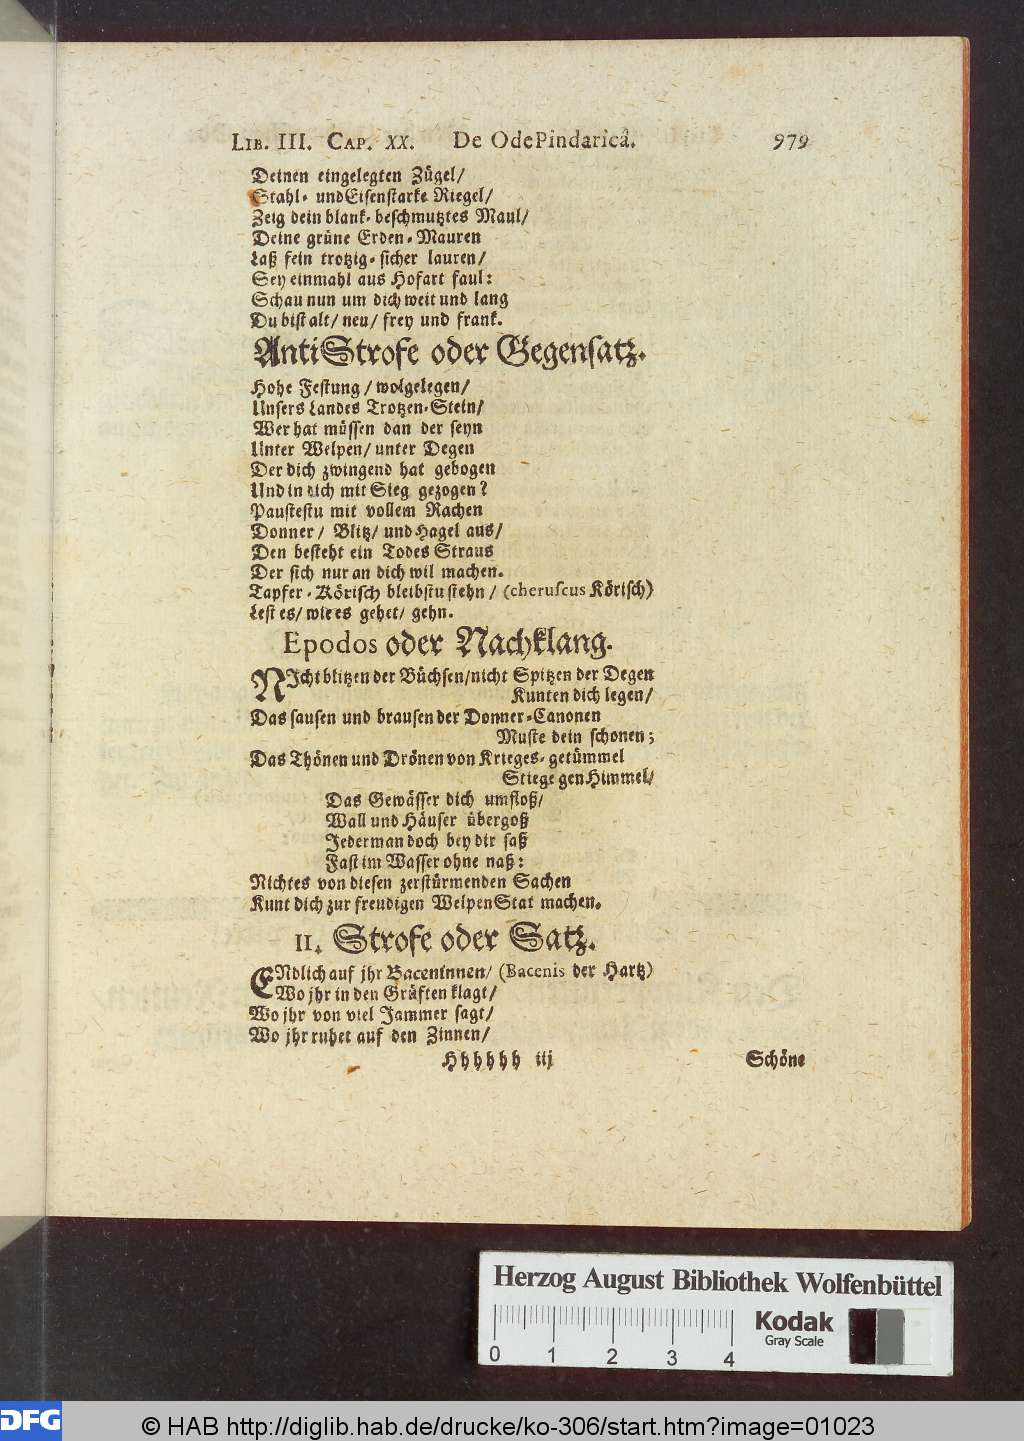 LIB. III. CAP. XX. De Ode Pindaricâ. 979
Deinen eingelegten Zügel/
Stahl- und Eisenstarke Riegel/
Zeig dein blank-beschmutztes Maul/
Deine grüne Erden-Mauren
Laß fein trotzig-sicher lauren/
Sey einmahl aus Hofart faul:
Schau nun um dich weit und lang
Du bist alt/ neu/ frey und frank.
AntiStrofe oder Gegensatz.
Hohe Festung/ wolgelegen/
Unsers Landes Trotzen-Stein/
Wer hat müssen dan der seyn
Unter Welpen/ unter Degen
Der dich zwingend hat gebogen
Und in dich mit Sieg gezogen?
Paustestu mit vollem Rachen
Donner/ Blitz/ und Hagel aus/
Den besteht ein Todes Straus
Der sich nur an dich wil machen.
Tapfer-Körisch bleibstu stehn/ (cheruscus Körisch)
Lest es/ wie es gehet/ gehn.
Epodos oder Nachklang.
NIcht blitzen der Büchsen/ nicht Spitzen der Degen
Kunten dich legen/
Das sausen und brausen der Donner-Canonen
Muste dein schonen;
Das Thönen und Drönen von Krieges-getümmel
Stiege gen Himmel/
Das Gewässer dich umfloß/
Wall und Häuser übergoß
Jederman doch bey dir saß
Fast im Wasser ohne naß:
Nichtes von diesen zerstürmenden Sachen
Kunt dich zur freudigen WelpenStat machen.
II. Strofe oder Satz.
ENdlich auf jhr Baceninnen/ (Bacenis der Hartz)
Wo jhr in den Gräften klagt/
Wo jhr von viel Jammer sagt/
Wo jhr ruhet auf den Zinnen/
Hhhhhh iij Schöne
Herzog August Bibliothek Wolfenbüttel
Kodak
Gray Scale
0 1 2 3 4
DFG
© HAB http://diglib.hab.de/drucke/ko-306/start.htm?image=01023